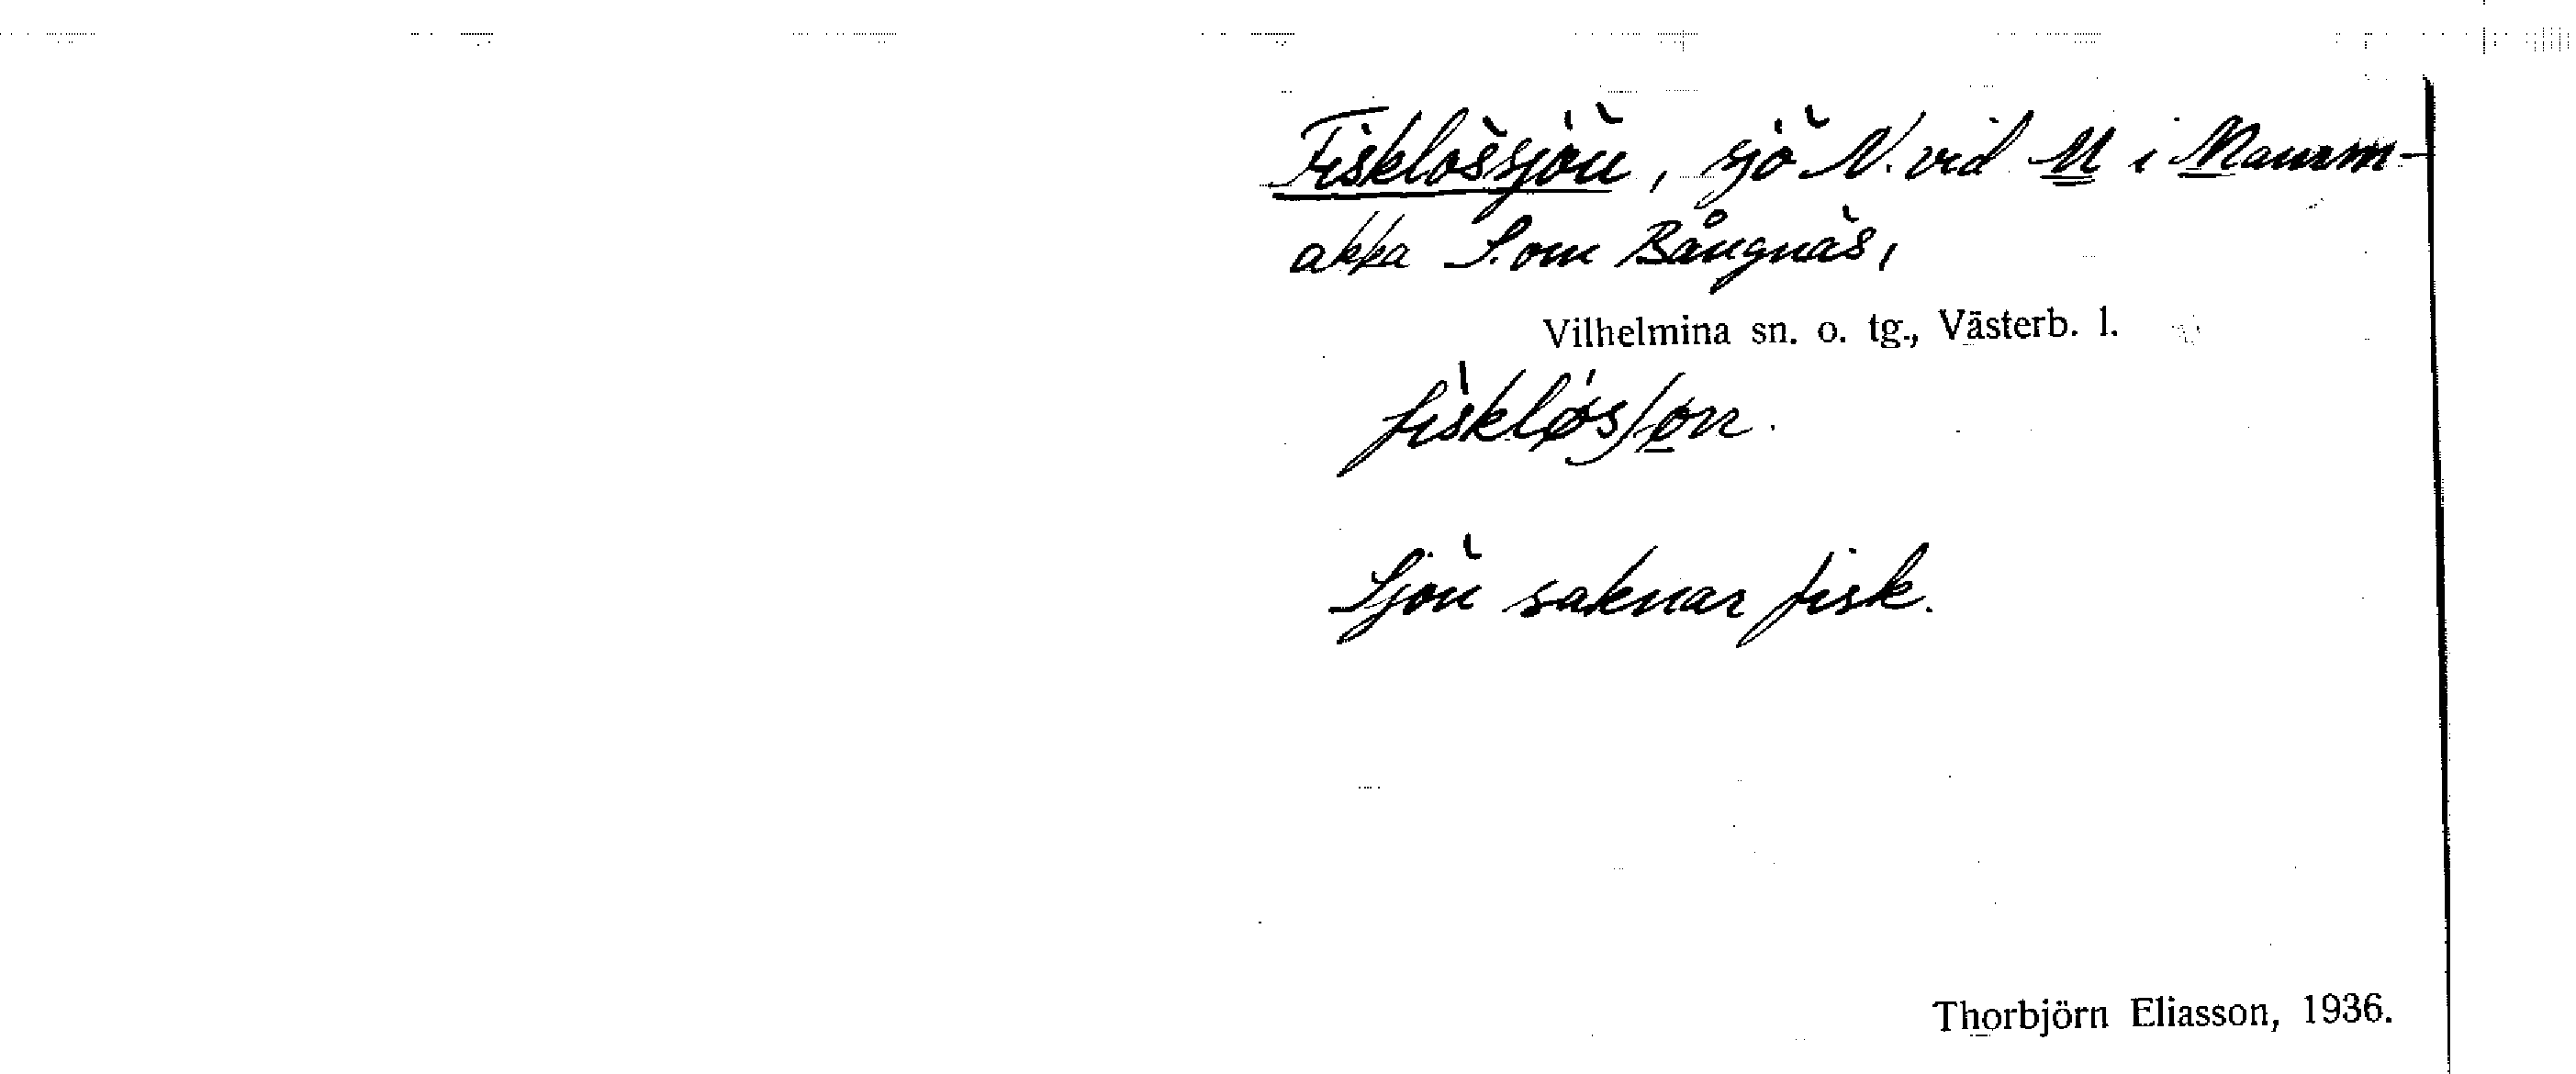 Fisklössjön, sjö N. vid M i Maurm-
akka S. om Bångnäs,
Vilhelmina sn. o. tg., Västerb. l.
Sjön saknar fisk.
Thorbjörn Eliasson, 1936.